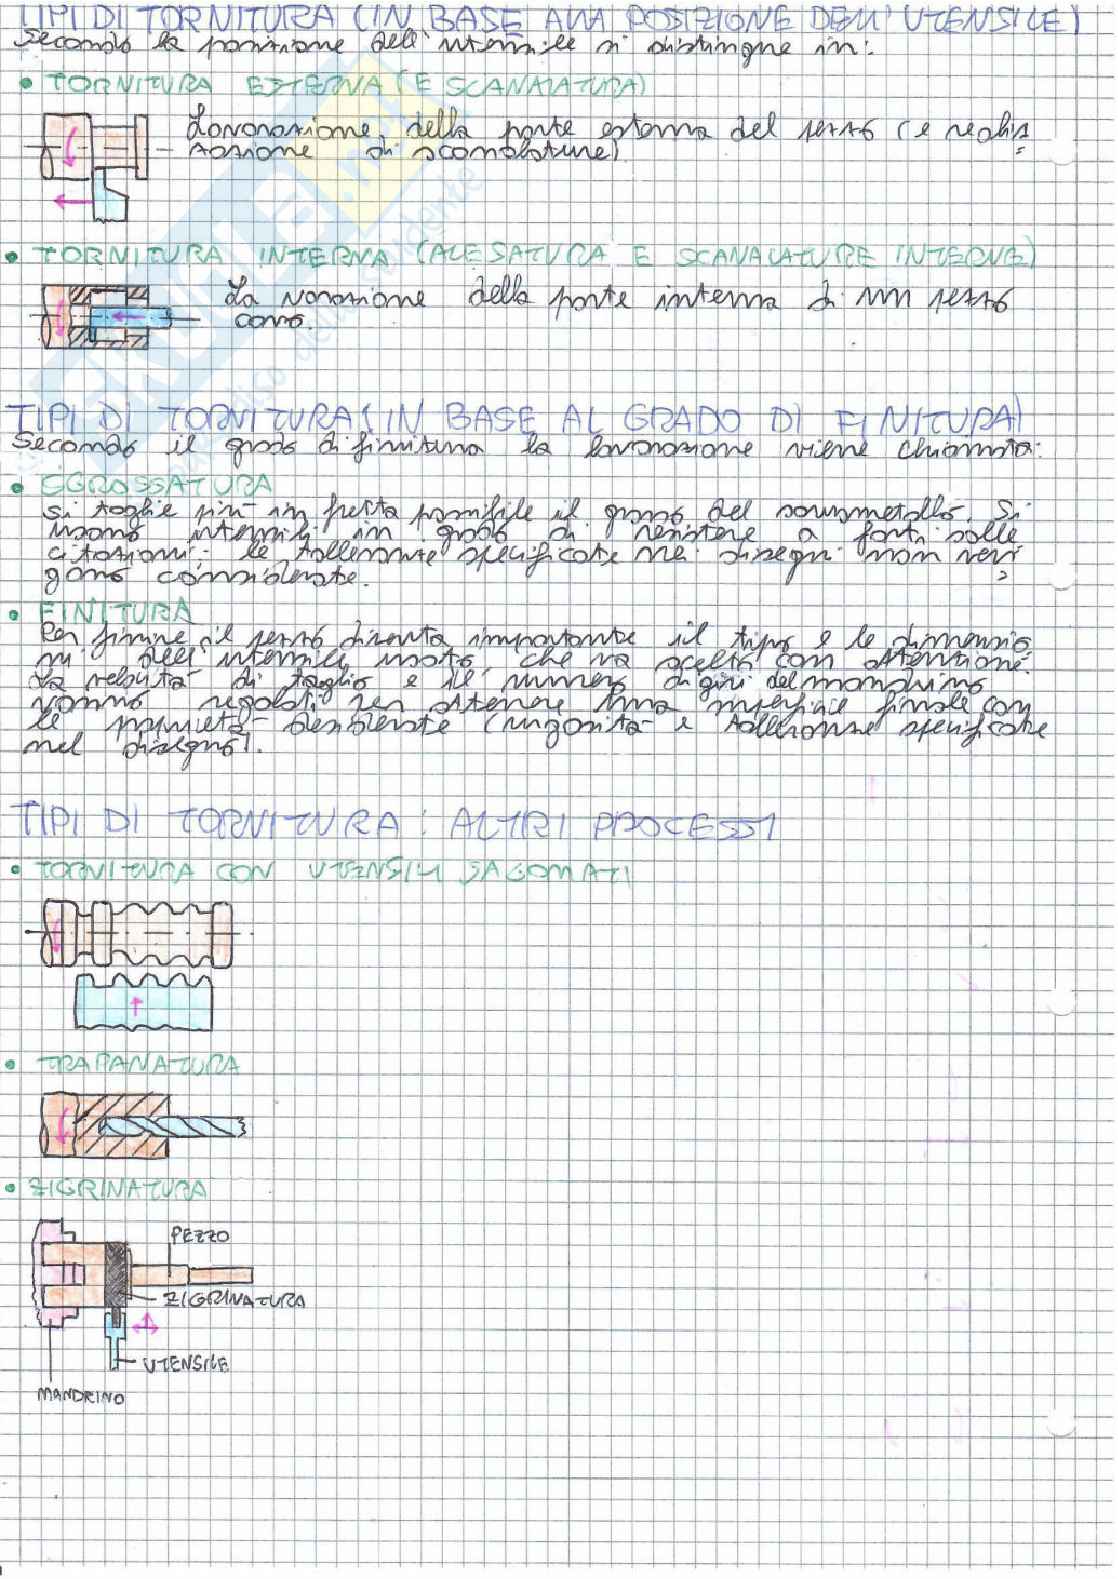 TIPI DI TORNITURA (IN BASE ALLA POSIZIONE DELL'UTENSILE)
Secondo la posizione dell'utensile si distingue in:
• TORNITURA ESTERNA (E SCANALATURA)
Lavorazione della parte esterna del pezzo (e realiz
zazione di scanalature)
• TORNITURA INTERNA (ALESATURA E SCANALATURE INTERNE)
La vorazione della parte interna di un pezzo
cavo.
TIPI DI TORNITURA (IN BASE AL GRADO DI FINITURA)
Secondo il grado di finitura la lavorazione viene chiamata:
• SGROSSATURA
Si toglie più in fretta possibile il grosso del sovrametallo. Si
usano utensili in grado di resistere a forti solle
citazioni; le tolleranze specificate nei disegni non ven
gono considerate.
• FINITURA
Per finire il pezzo diventa importante il tipo e le dimensio
ni dell'utensile usato, che va scelto con attenzione.
La velocità di taglio e il numero di giri del mandrino
vanno regolati per ottenere una superficie finale con
le proprietà desiderate (rugosità e tolleranze specificate
nel disegno).
TIPI DI TORNITURA: ALTRI PROCESSI
• TORNITURA CON UTENSILI SAGOMATI
• TRAPANATURA
• ZIGRINATURA
PEZZO
ZIGRINATURA
UTENSILE
MANDRINO